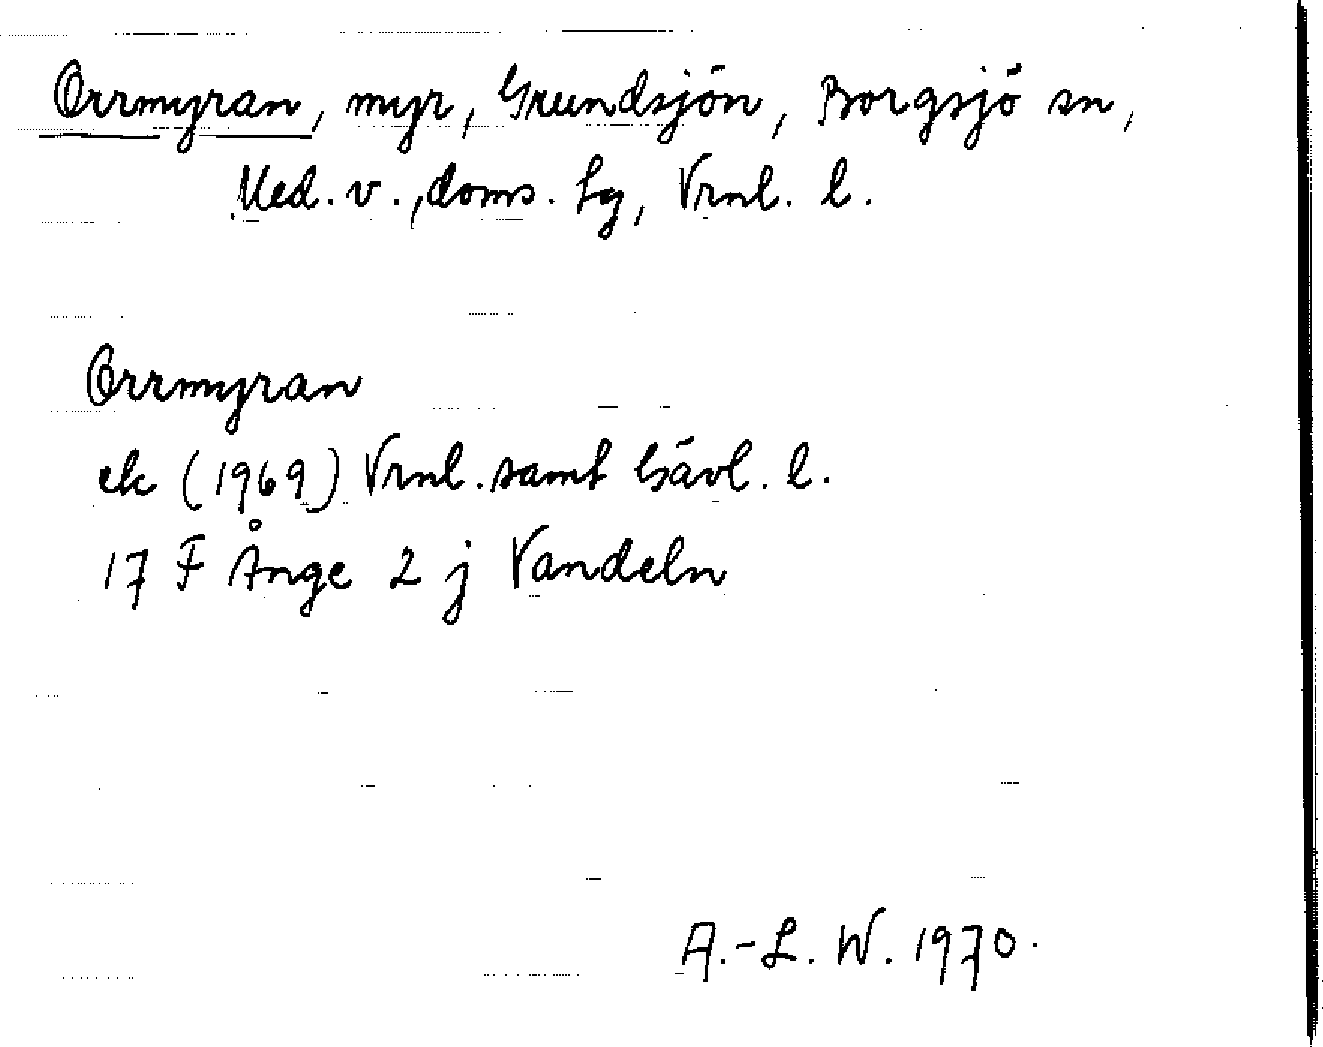 Orrmyran, myr, Grundsjön, Borgsjö sn,
Med. v., doms. lg, Vrnl. l.
Orrmyran
ek (1969) Vrnl. samt Gävl. l.
17 F Ånge 2 j Vandeln
A.-L. W. 1970.